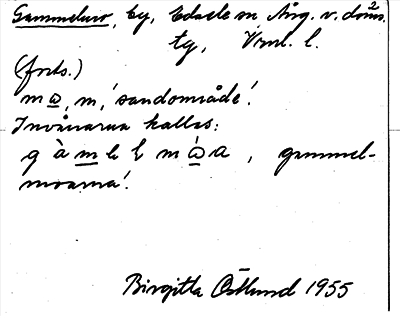 Gammelmo, by, Edsele sn, Ång. v. doms.
tg, Vrml. l.
(forts.)
mω, m, 'sandområde'.
Invånarna kallas:
gàmlmω̇a, gammel-
moarna'.
Birgitta Östlund 1955